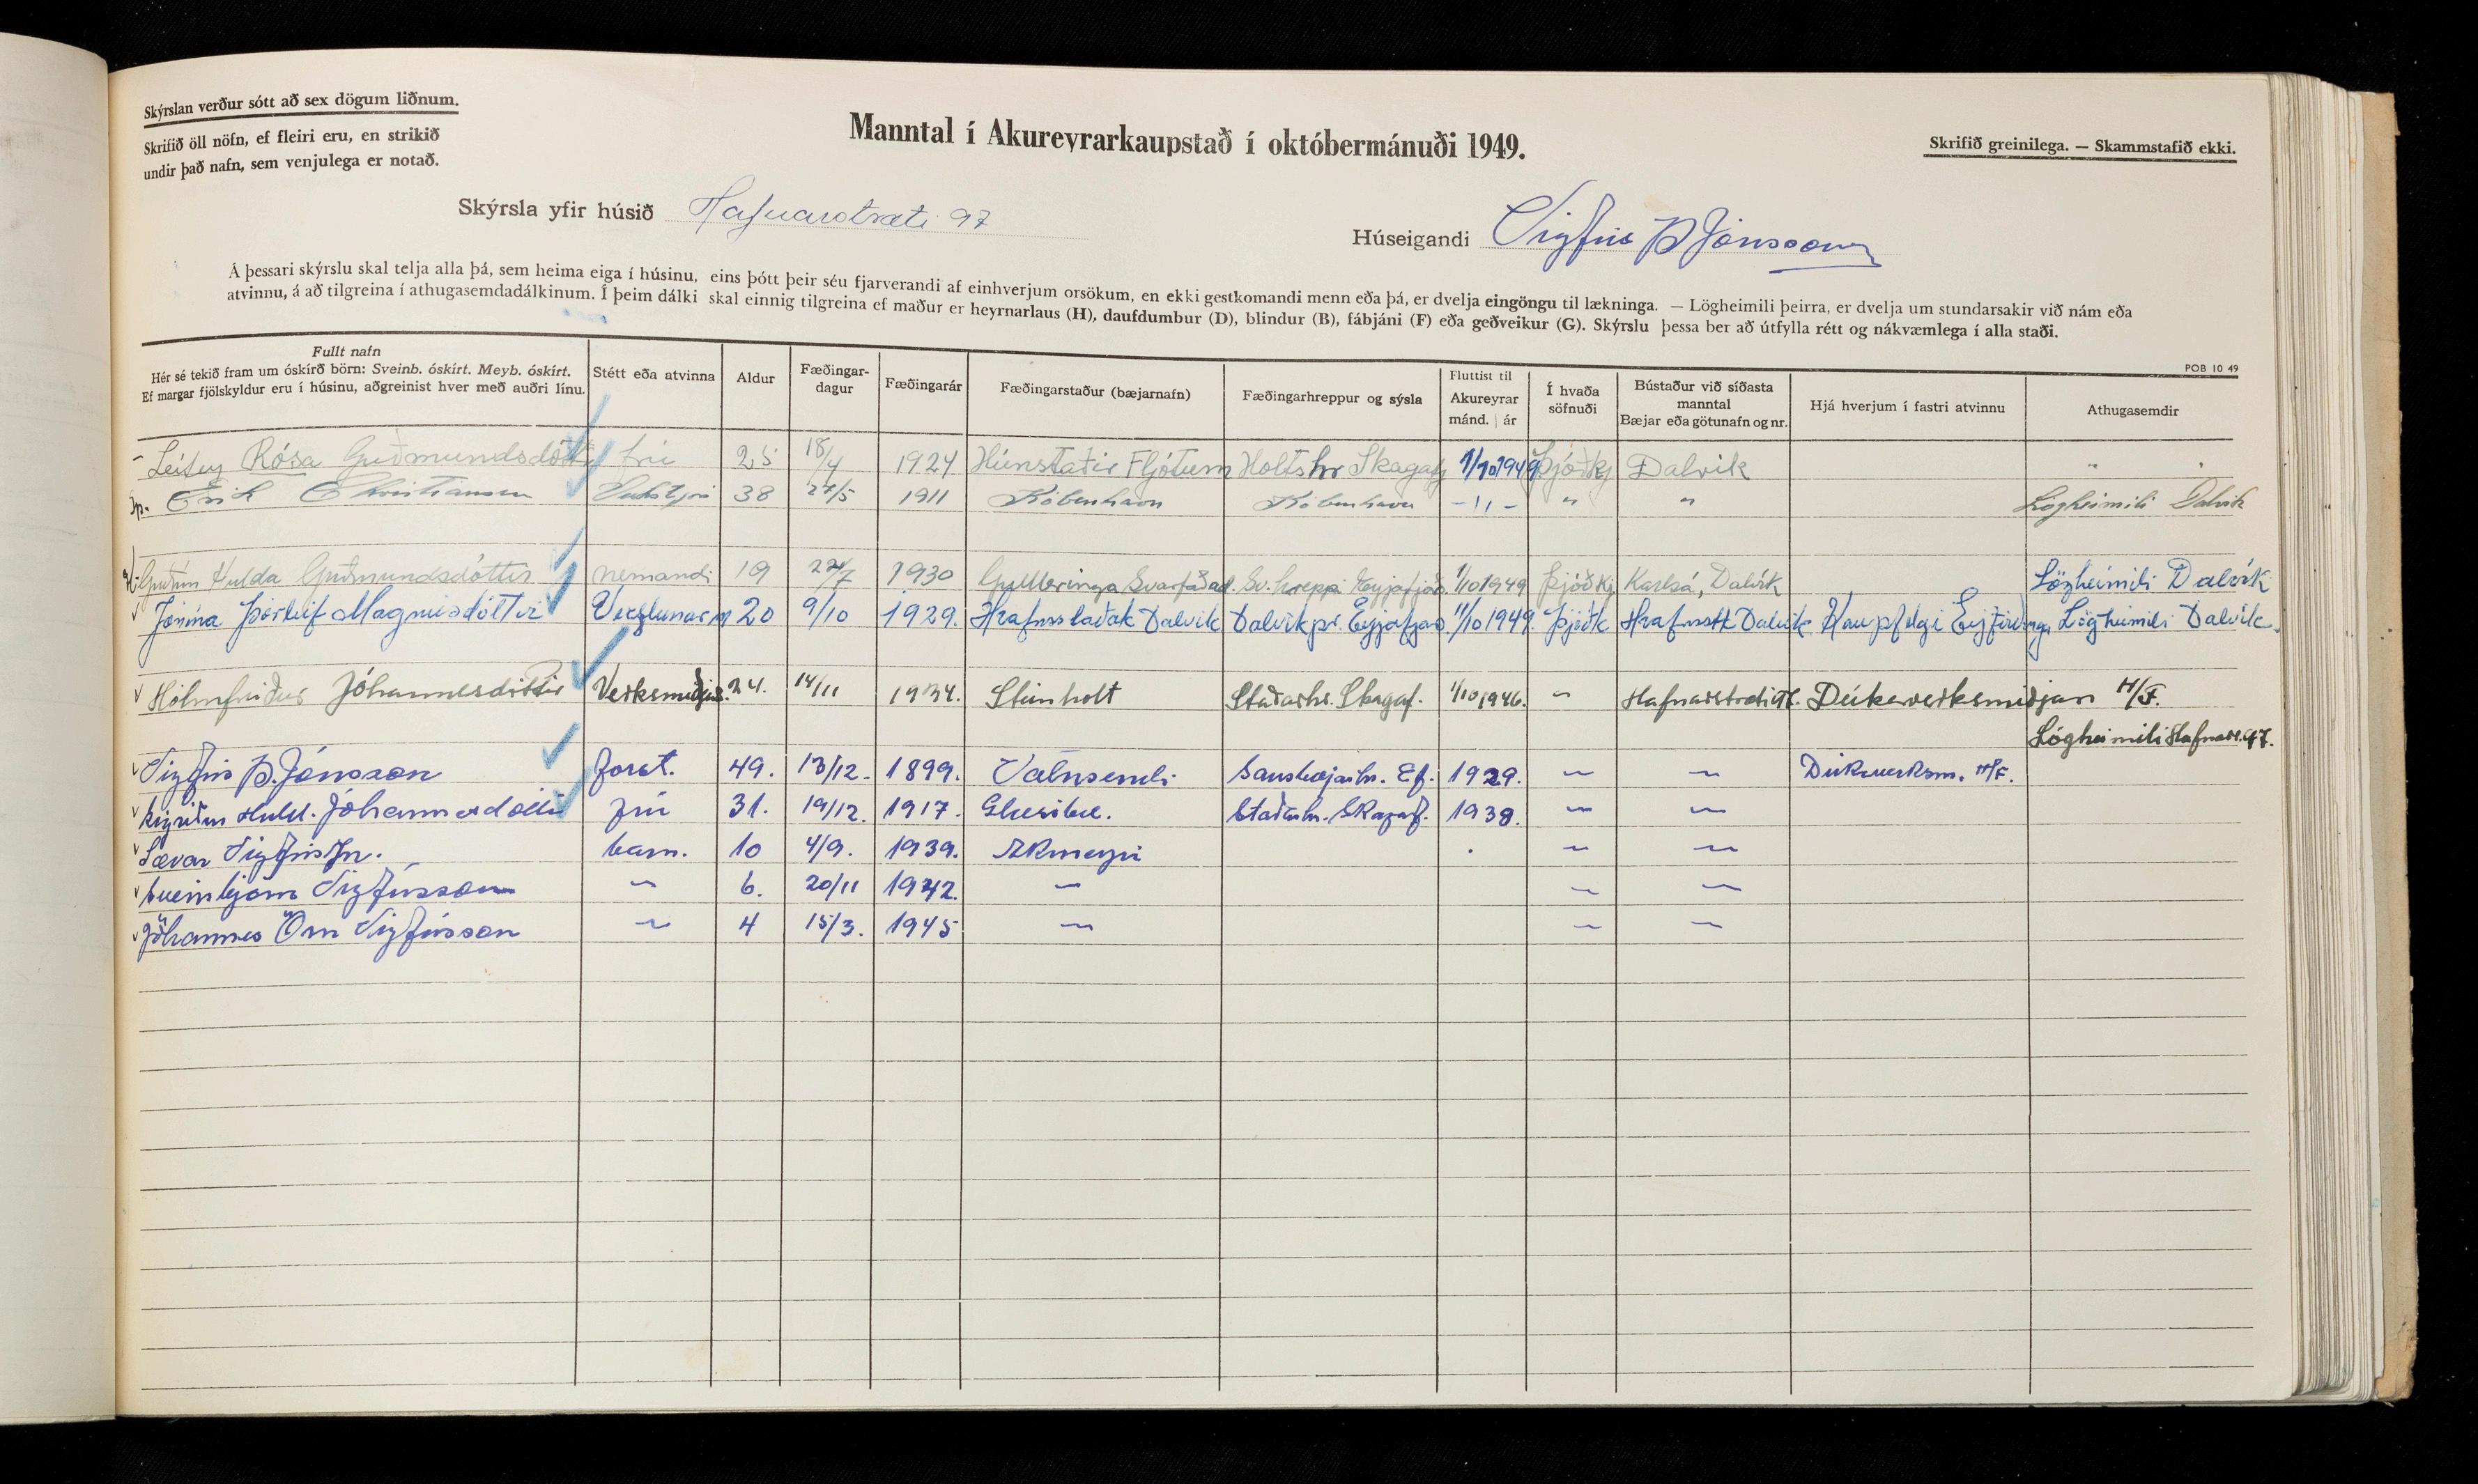 Skýrslan verður sótt að sex dögum liðnum.
Skrifið öll nöfn, ef fleiri eru, en strikið
undir það nafn, sem venjulega er notað.
Manntal í Akureyrarkaupstað í októbermánuði 1949.
Skrifið greinilega. — Skammstafið ekki.
Skýrsla yfir húsið Hafnarstræti 97
Húseigandi Vigfús Þ Jónsson
Á þessari skýrslu skal telja alla þá, sem heima eiga í húsinu, eins þótt þeir séu fjarverandi af einhverjum orsökum, en ekki gestkomandi menn eða þá, er dvelja eingöngu til lækninga. — Lögheimili þeirra, er dvelja um stundarsakir við nám eða
atvinnu, á að tilgreina í athugasemdadálkinum. Í þeim dálki skal einnig tilgreina ef maður er heyrnarlaus (H), daufdumbur (D), blindur (B), fábjáni (F) eða geðveikur (G). Skýrslu þessa ber að útfylla rétt og nákvæmlega í alla staði.
POB 10 49
Fullt nafn
Hér sé tekið fram um óskírð börn: Sveinb. óskírt. Meyb. óskírt.
Ef margar fjölskyldur eru í húsinu, aðgreinist hver með auðri línu.
Stétt eða atvinna
Aldur
Fæðingar-
dagur
Fæðingarár
Fæðingarstaður (bæjarnafn)
Fæðingarhreppur og sýsla
Fluttist til
Akureyrar
mánd. | ár
Í hvaða
söfnuði
Bústaður við síðasta
manntal
Bæjar eða götunafn og nr.
Hjá hverjum í fastri atvinnu
Athugasemdir
Rósa Guðmundsdóttir frú 25 18/4 1924 Fljótum Holtshr Skagafj 1/10 1949 Þjóðkj Dalvik "
Erik Christiansen 38 27/5 1911 Köbenhavn Köbenhavn - " - " " Lögheimili Dalvik
Guðrún Hulda Guðmundsdóttir nemandi 19 1930 Svarfaðad. Sv. hreppi Eyjafjað. 1/10 1949 Þjóðkj Karlsá, Dalvík Lögheimili Dalvík
Jónína Þórleif Magnúsdóttir Verzlunarm 20 9/10 1929. Dalvik Dalvikhr. Eyjafjað 1/10 1949. Þjóðk Dalvik Lögheimili Dalvik.
Hólmfríður Jóhannesdóttir 24. 14/11 Steinholt Staðarhr. Skagaf. 1/10 1946. " Hafnarstræti 97. Dúkaverksmiðjan H/F.
Lögheimili Hafnarst. 97.
Vigfús Þ. Jónsson forst. 49. 13/12. 1899. 1929. " " Dúkaverksm. H/F.
Jóhannesdóttir frú 31. 19/12. 1917. Staðarhr. Skagaf. 1938. " "
Sævar Vigfússon. barn. 10 4/9. 1939. Akureyri " "
Sveinbjörn Vigfússon " 6. 20/11 1942. " " "
Jóhannes Örn Vigfússon " 4 15/3. 1945 " " "